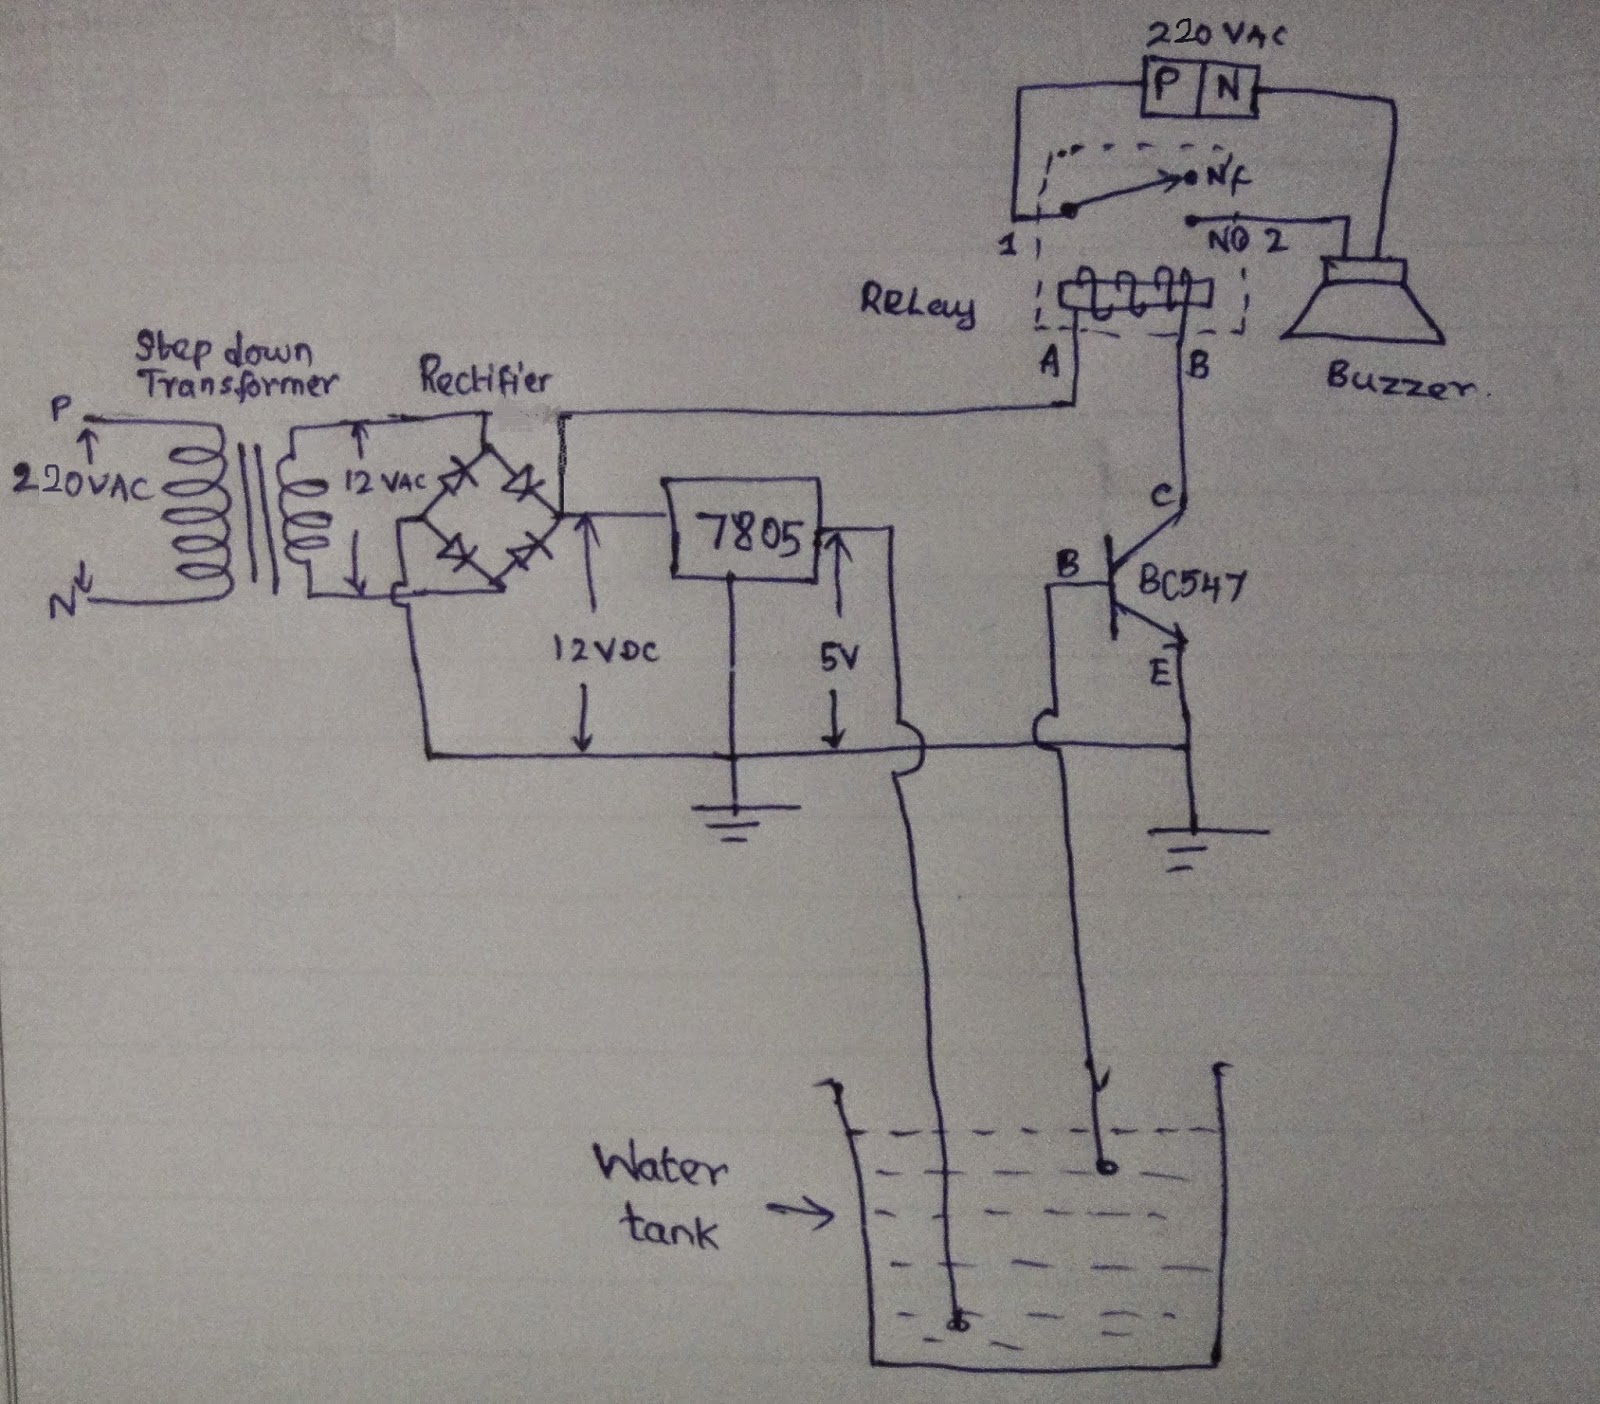 220 VAC
P N
N/C
1
NO 2
Relay
A
B
Buzzer.
Step down
Transformer
Rectifier
P
220VAC
12 VAC
N
7805
C
B
BC547
E
12VDC
5V
Water
tank